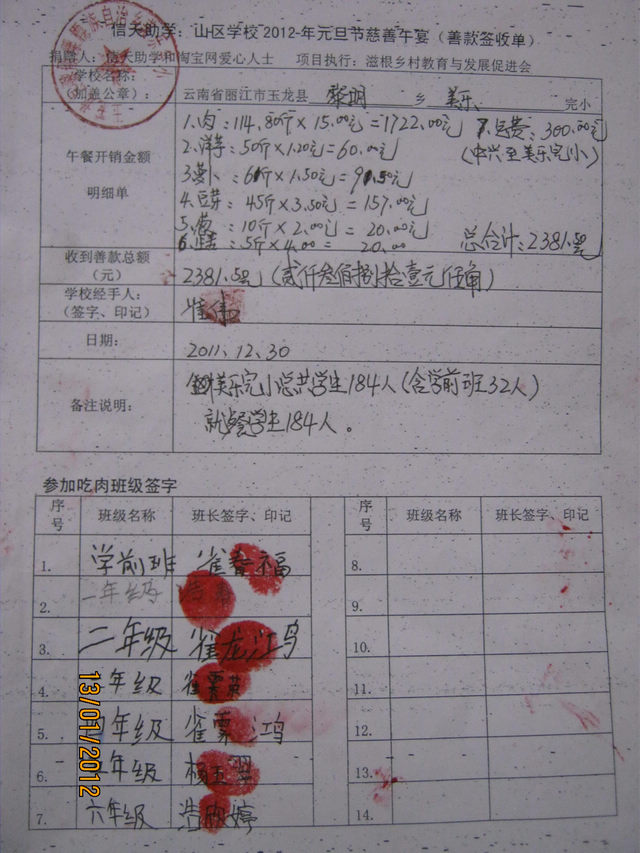 信天助学：山区学校 2012-年元旦节慈善午宴（善款签收单）
捐赠人：信天助学和淘宝网爱心人士 项目执行：滋根乡村教育与发展促进会
学校名称：
（加盖公章）： 云南省丽江市玉龙县 黎明 乡 美乐 完小
午餐开销金额
明细单
1.肉：114.80斤×15.00元=1722.00元 7.运费：300.00元
2.洋芋：50斤×1.20元=60.00元 (中兴至美乐完小)
3萝卜：61斤×1.50元=91.50元
4.豆芽：45斤×3.50元=157.00元
5.葱：10斤×2.00元=20.00元
6. 5斤×4.00=20.00 总合计：2381.5元
收到善款总额
（元）
2381.5元(贰仟叁佰捌拾壹元伍角)
学校经手人：
（签字、印记）
日期： 2011.12.30
备注说明：
美乐完小总共学生184人(含学前班32人)
就餐学生184人。
参加吃肉班级签字
序号 班级名称 班长签字、印记 序号 班级名称 班长签字、印记
1. 学前班 雀春福 8.
2. 一年级 9.
3. 二年级 雀龙江鸟 10.
4. 年级 雀 11.
5. 四年级 雀 鸿 12.
6. 年级 杨玉翠 13.
7. 六年级 浩欣婷 14.
13/01/2012